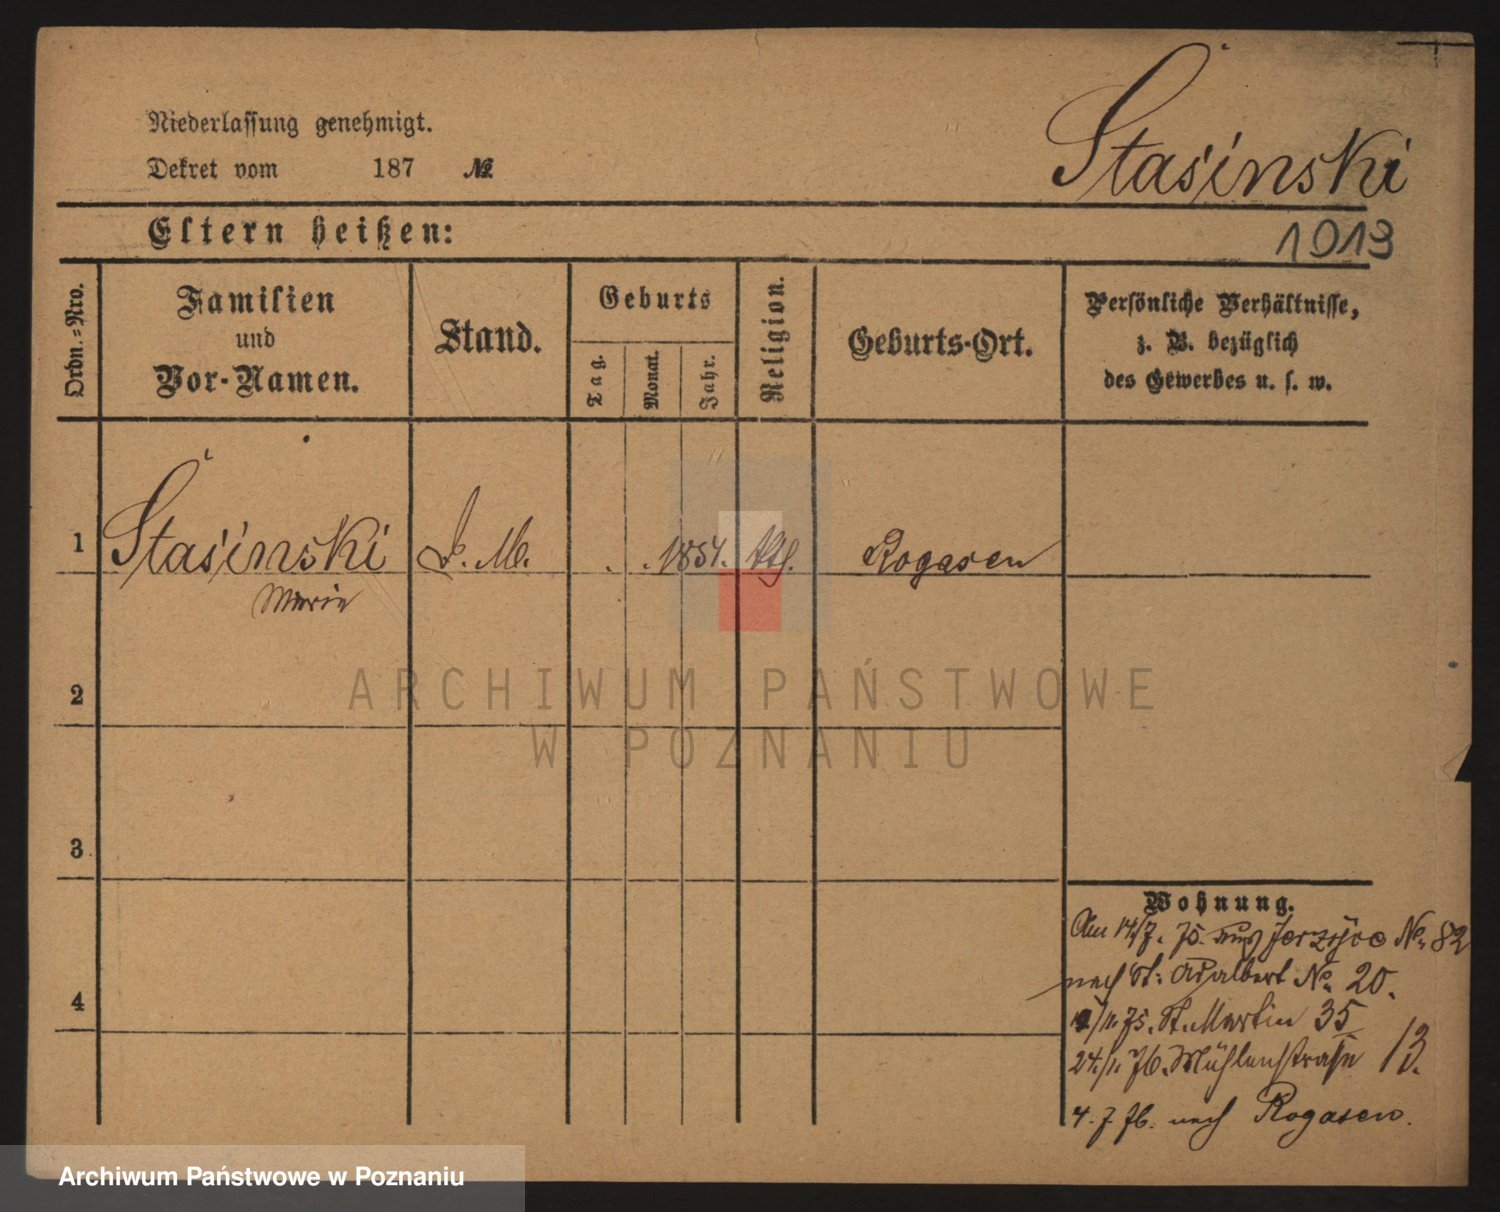 Stasinski
Niederlassung genehmigt.
Dekret vom 187 №
Eltern heißen:
1913
Ordn.-Nro.
Familien
und
Vor-Namen.
Stand.
Geburts
Tag.
Monat.
Jahr.
Religion.
Geburts-Ort.
Persönliche Verhältnisse,
z. B. bezüglich
des Gewerbes u. s. w.
1 Stasinski D. M. . . 1854. kth. Rogasen
Marie
2
3
4
Wohnung.
Am 14/7. 75. aus Jerzyce No. 82
nach St: Adalbert No. 20.
/11. 75. St. Martin 35
24./1. 76. Mühlenstraße 13.
4. 7 76. nach Rogasen.
ARCHIWUM PAŃSTWOWE
W POZNANIU
Archiwum Państwowe w Poznaniu